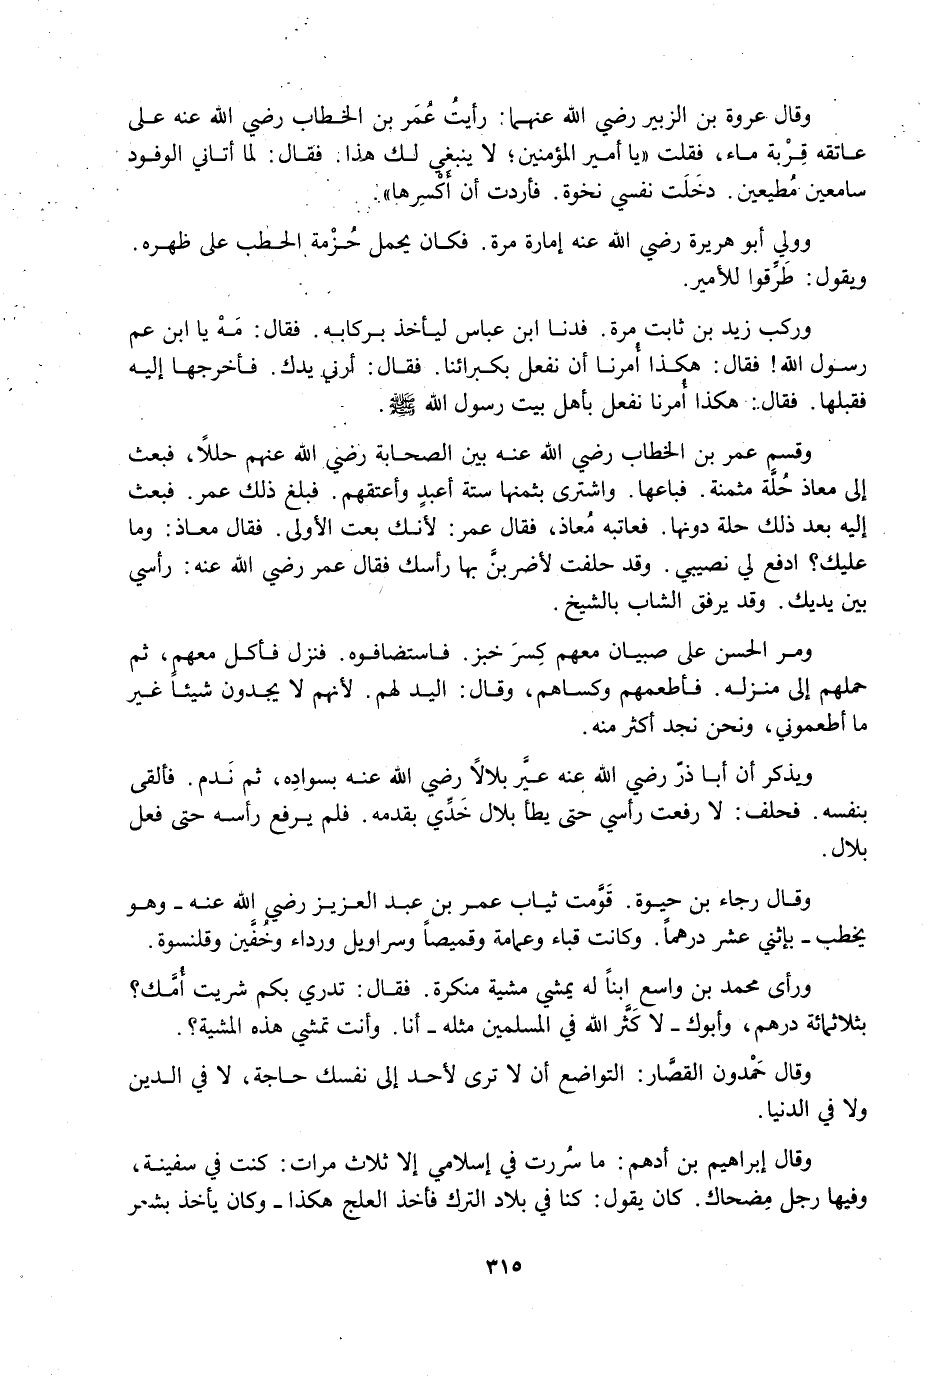 وقال عروة بن الزبير رضي الله عنهما: رأيتُ عُمَر بن الخطاب رضي الله عنه على
عاتقه قِرْبة ماء، فقلت «يا أمير المؤمنين؛ لا ينبغي لك هذا. فقال: لما أتاني الوفود
سامعين مُطيعين. دخَلَت نفسي نخوة. فأردت أن أكْسِرها».
وولي أبو هريرة رضي الله عنه إمارة مرة. فكان يحمل حُزْمة الحطب على ظهره.
ويقول: طَرِّقوا للأمير.
وركب زيد بن ثابت مرة. فدنا ابن عباس ليأخذ بركابه. فقال: مَهْ يا ابن عم
رسول الله! فقال: هكذا أُمرنا أن نفعل بكبرائنا. فقال: أرني يدك. فأخرجها إليه
فقبلها. فقال: هكذا أُمرنا نفعل بأهل بيت رسول الله ﷺ.
وقسم عمر بن الخطاب رضي الله عنه بين الصحابة رضي الله عنهم حللاً، فبعث
إلى معاذ حُلَّة مثمنة. فباعها. واشترى بثمنها ستة أعبدٍ وأعتقهم. فبلغ ذلك عمر. فبعث
إليه بعد ذلك حلة دونها. فعاتبه مُعاذ، فقال عمر: لأنك بعت الأولى. فقال معاذ: وما
عليك؟ ادفع لي نصيبي. وقد حلفت لأضربنَّ بها رأسك فقال عمر رضي الله عنه: رأسي
بين يديك. وقد يرفق الشاب بالشيخ.
ومر الحسن على صبيان معهم كِسرَ خبز. فاستضافوه. فنزل فأكل معهم، ثم
حملهم إلى منزله. فأطعمهم وكساهم، وقال: اليد لهم. لأنهم لا يجدون شيئاً غير
ما أطعموني، ونحن نجد أكثر منه.
ويذكر أن أبا ذرّ رضي الله عنه عيَّر بلالاً رضي الله عنه بسواده، ثم نَدم. فألقى
بنفسه. فحلف: لا رفعت رأسي حتى يطأ بلال خَدِّي بقدمه. فلم يرفع رأسه حتى فعل
بلال.
وقال رجاء بن حيوة. قَوَّمت ثياب عمر بن عبد العزيز رضي الله عنه ـ وهو
يخطب ـ بإثني عشر درهماً. وكانت قباء وعمامة وقميصاً وسراويل ورداء وخُفَّين وقلنسوة.
ورأى محمد بن واسع ابناً له يمشي مشية منكرة. فقال: تدري بكم شريت أُمَّك؟
بثلاثمائة درهم، وأبوك ـ لا كَثَّر الله في المسلمين مثله ـ أنا. وأنت تمشي هذه المشية؟.
وقال حَمْدون القصَّار: التواضع أن لا ترى لأحد إلى نفسك حاجة، لا في الدين
ولا في الدنيا.
وقال إبراهيم بن أدهم: ما سُررت في إسلامي إلا ثلاث مرات: كنت في سفينة،
وفيها رجل مِضحاك. كان يقول: كنا في بلاد الترك فأخذ العلج هكذا ـ وكان يأخذ بشعر
٣١٥